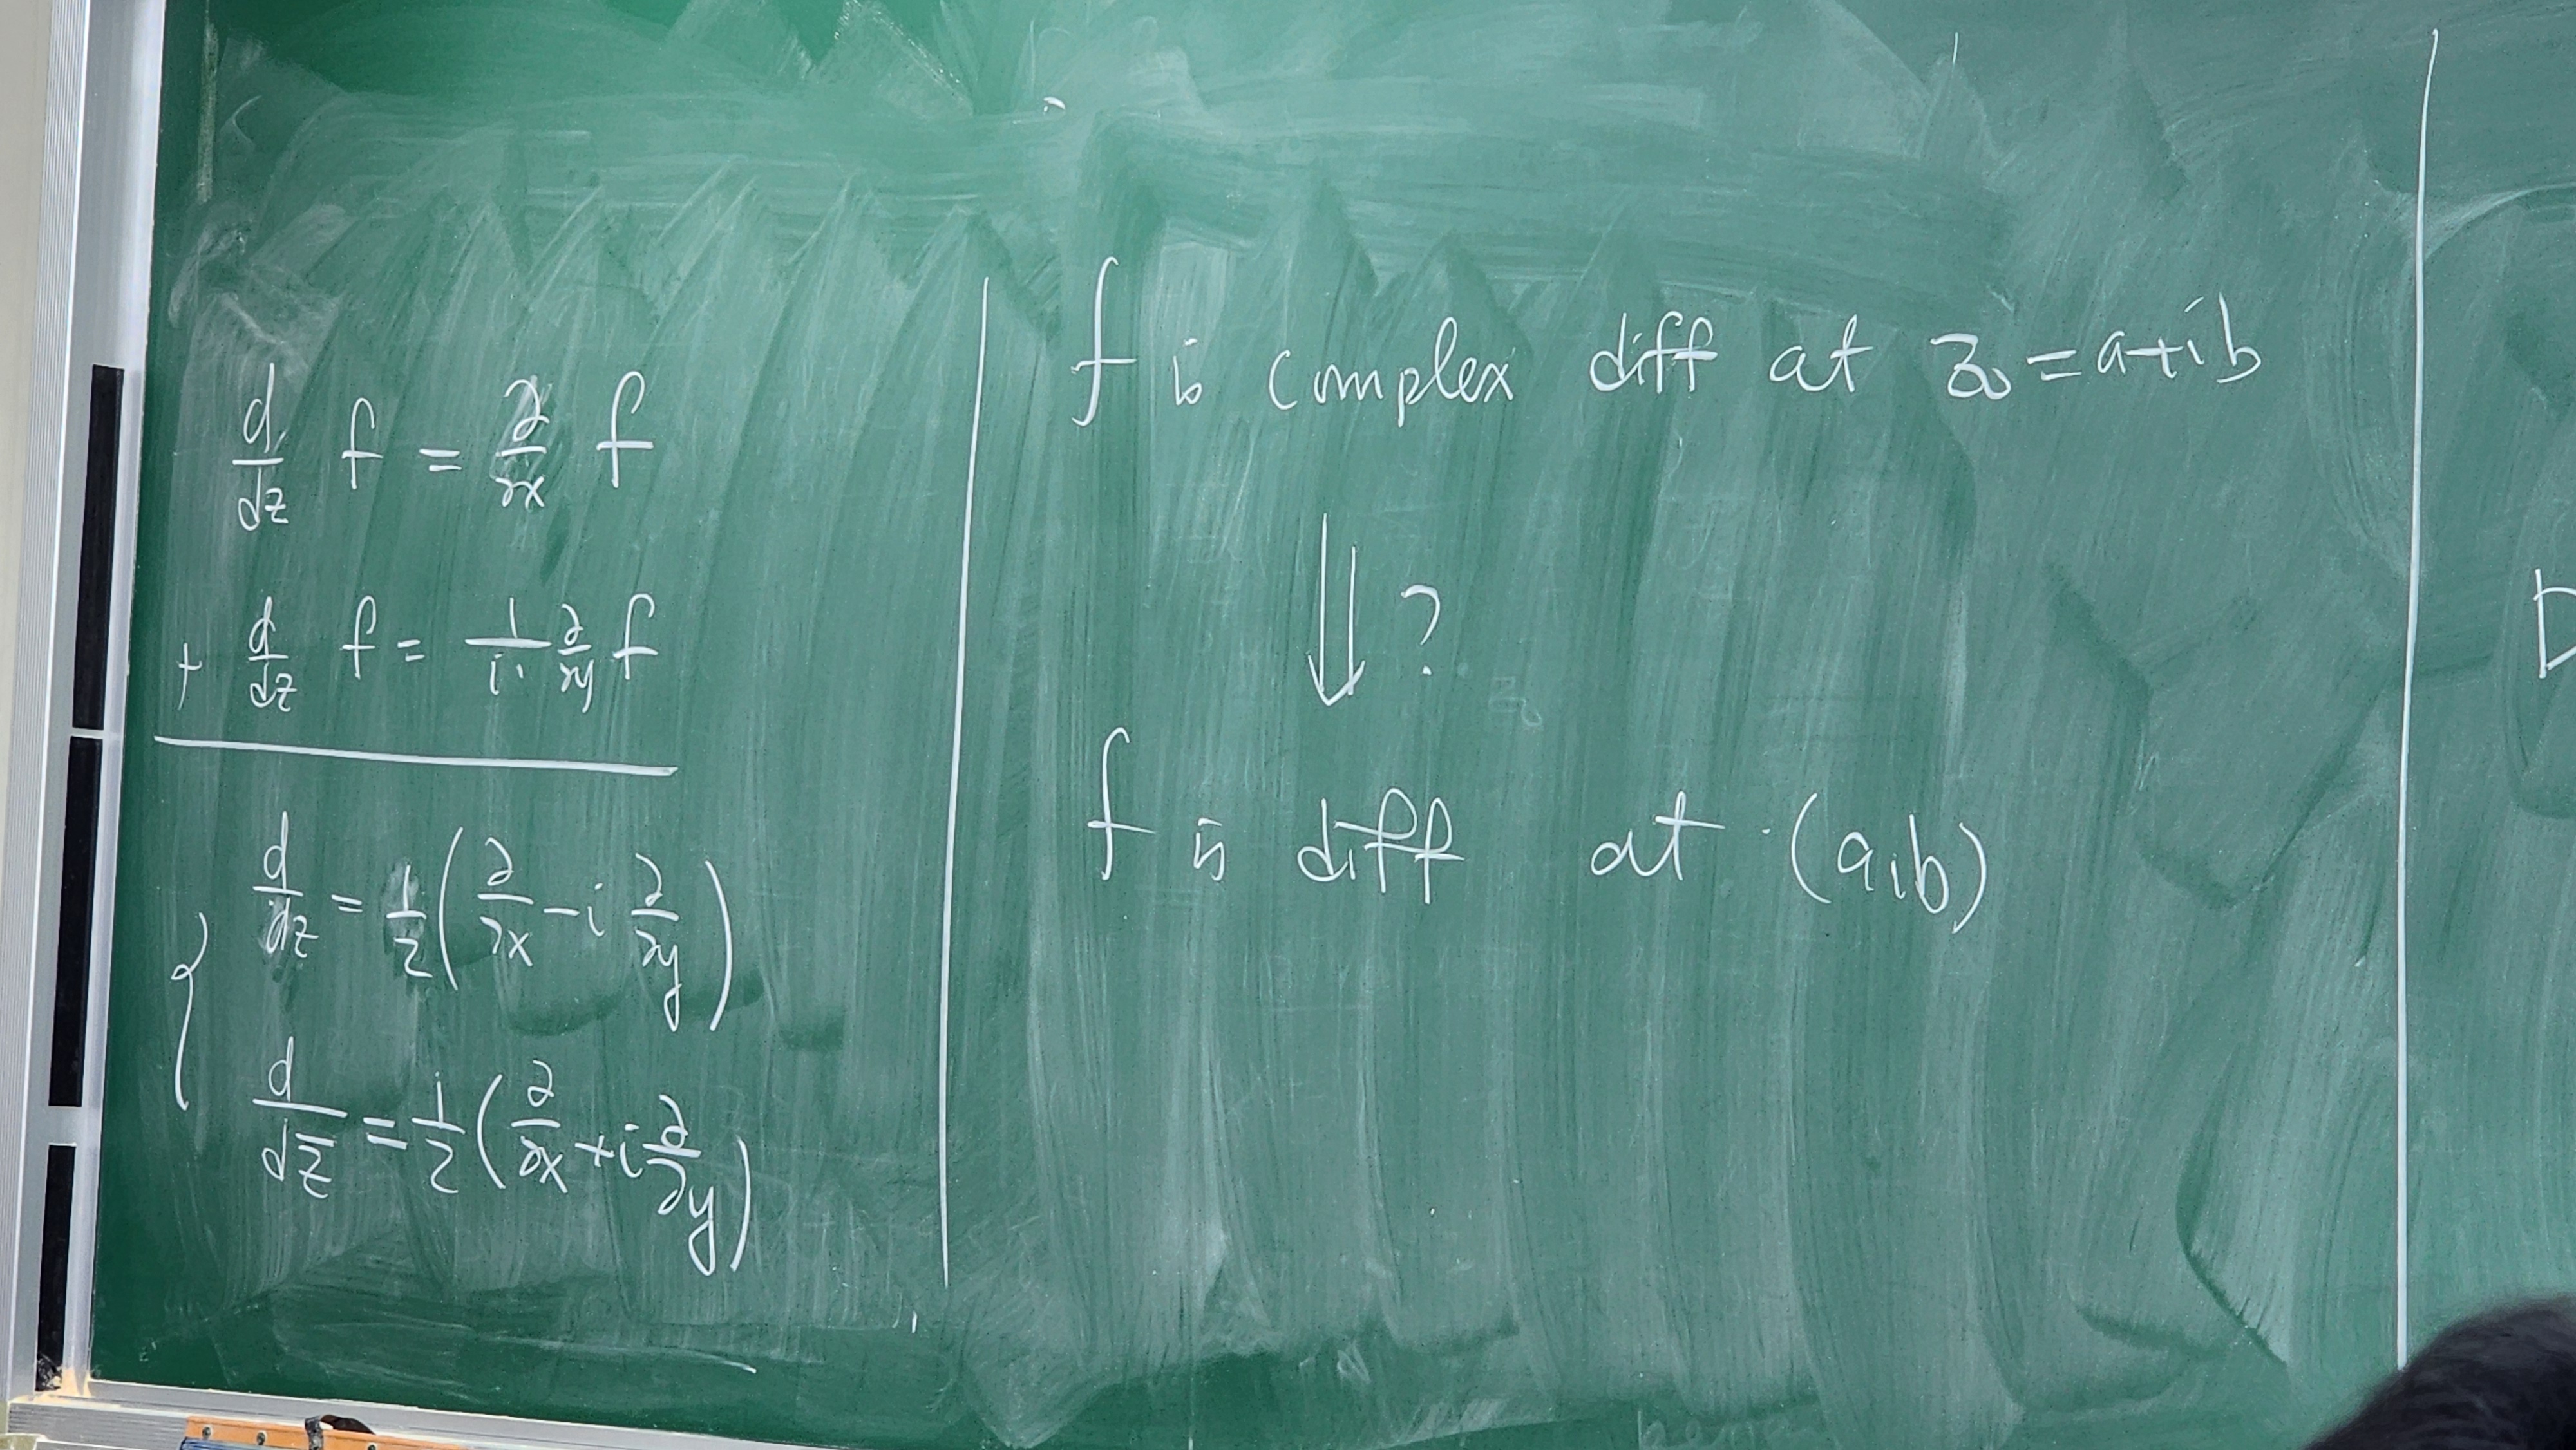 d/dz f = ∂/∂x f
+ d/dz f = 1/i · ∂/∂y f
d/dz = 1/2 (∂/∂x − i ∂/∂y)
d/dz̄ = 1/2 (∂/∂x + i ∂/∂y)
f is complex diff at z₀ = a+ib
⇓ ?
f is diff at (a,b)
D